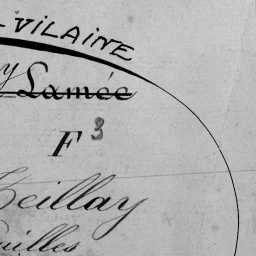 -VILAINE
y Lamée
F 3
Teillay
uilles